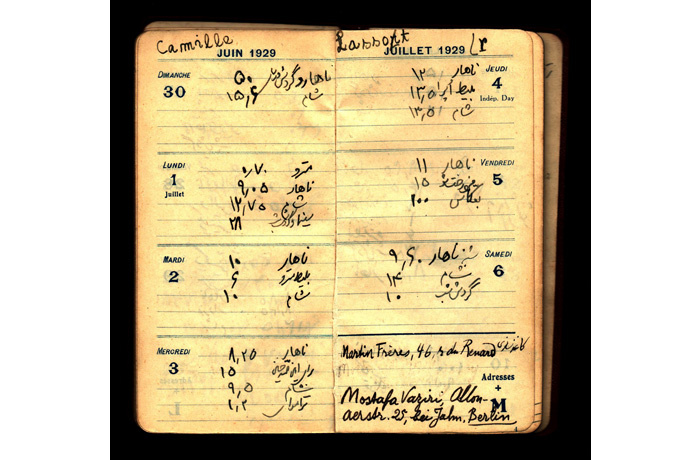 Camille
JUIN 1929
DIMANCHE
30
ناهار و گردش
۵۰
شام
۱۵٫۶
LUNDI
1
Juillet
مترو ۰٫۷۰
ناهار ۹٫۰۵
شام ۱۲٫۷۵
سینما
۲۸
MARDI
2
ناهار ۱۰
بلیط مترو ۶
شام ۱۰
MERCREDI
3
ناهار ۸٫۲۵
برای
۱۵
شام ۹٫۵
تراموای ۱٫۲
JUILLET 1929
JEUDI
4
Indép. Day
ناهار
بلیط اپرا ۱۳٫۵
شام ۱۳٫۵
VENDREDI
5
ناهار ۱۱
۱۵
۱۰۰
SAMEDI
6
ناهار ۹٫۶۰
شام ۱۴
گردش شب ۱۰
Martin Frères, 46, r. du Renard
Adresses
+
M
Mostafa Vaziri, Allon-
aerstr. 25, bei Jahn, Berlin